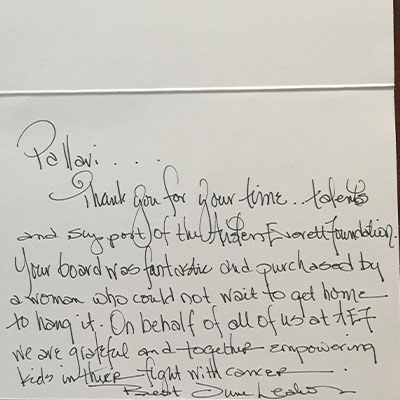 Pallavi....
Thank you for your time.. talents
and support of the Anders Everett Foundation.
Your board was fantastic and purchased by
a woman who could not wait to get home
to hang it. On behalf of all of us at AEF
we are grateful and together empowering
kids in their fight with cancer.
Best June